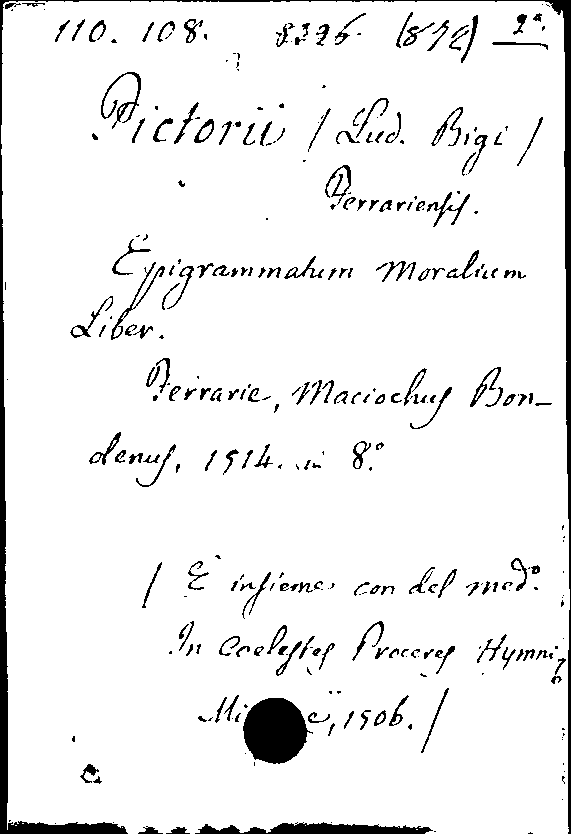 110. 108. 8326. (872) 2ª.
Pictorii / Lud. Bigi /
Ferrariensis.
Epigrammatum Moralium
Liber.
Ferrarie, Maciochus Bon-
denus, 1514. in 8.°
/ E insieme con del med.°
In Coelestes Proceres Hymni
1506. /